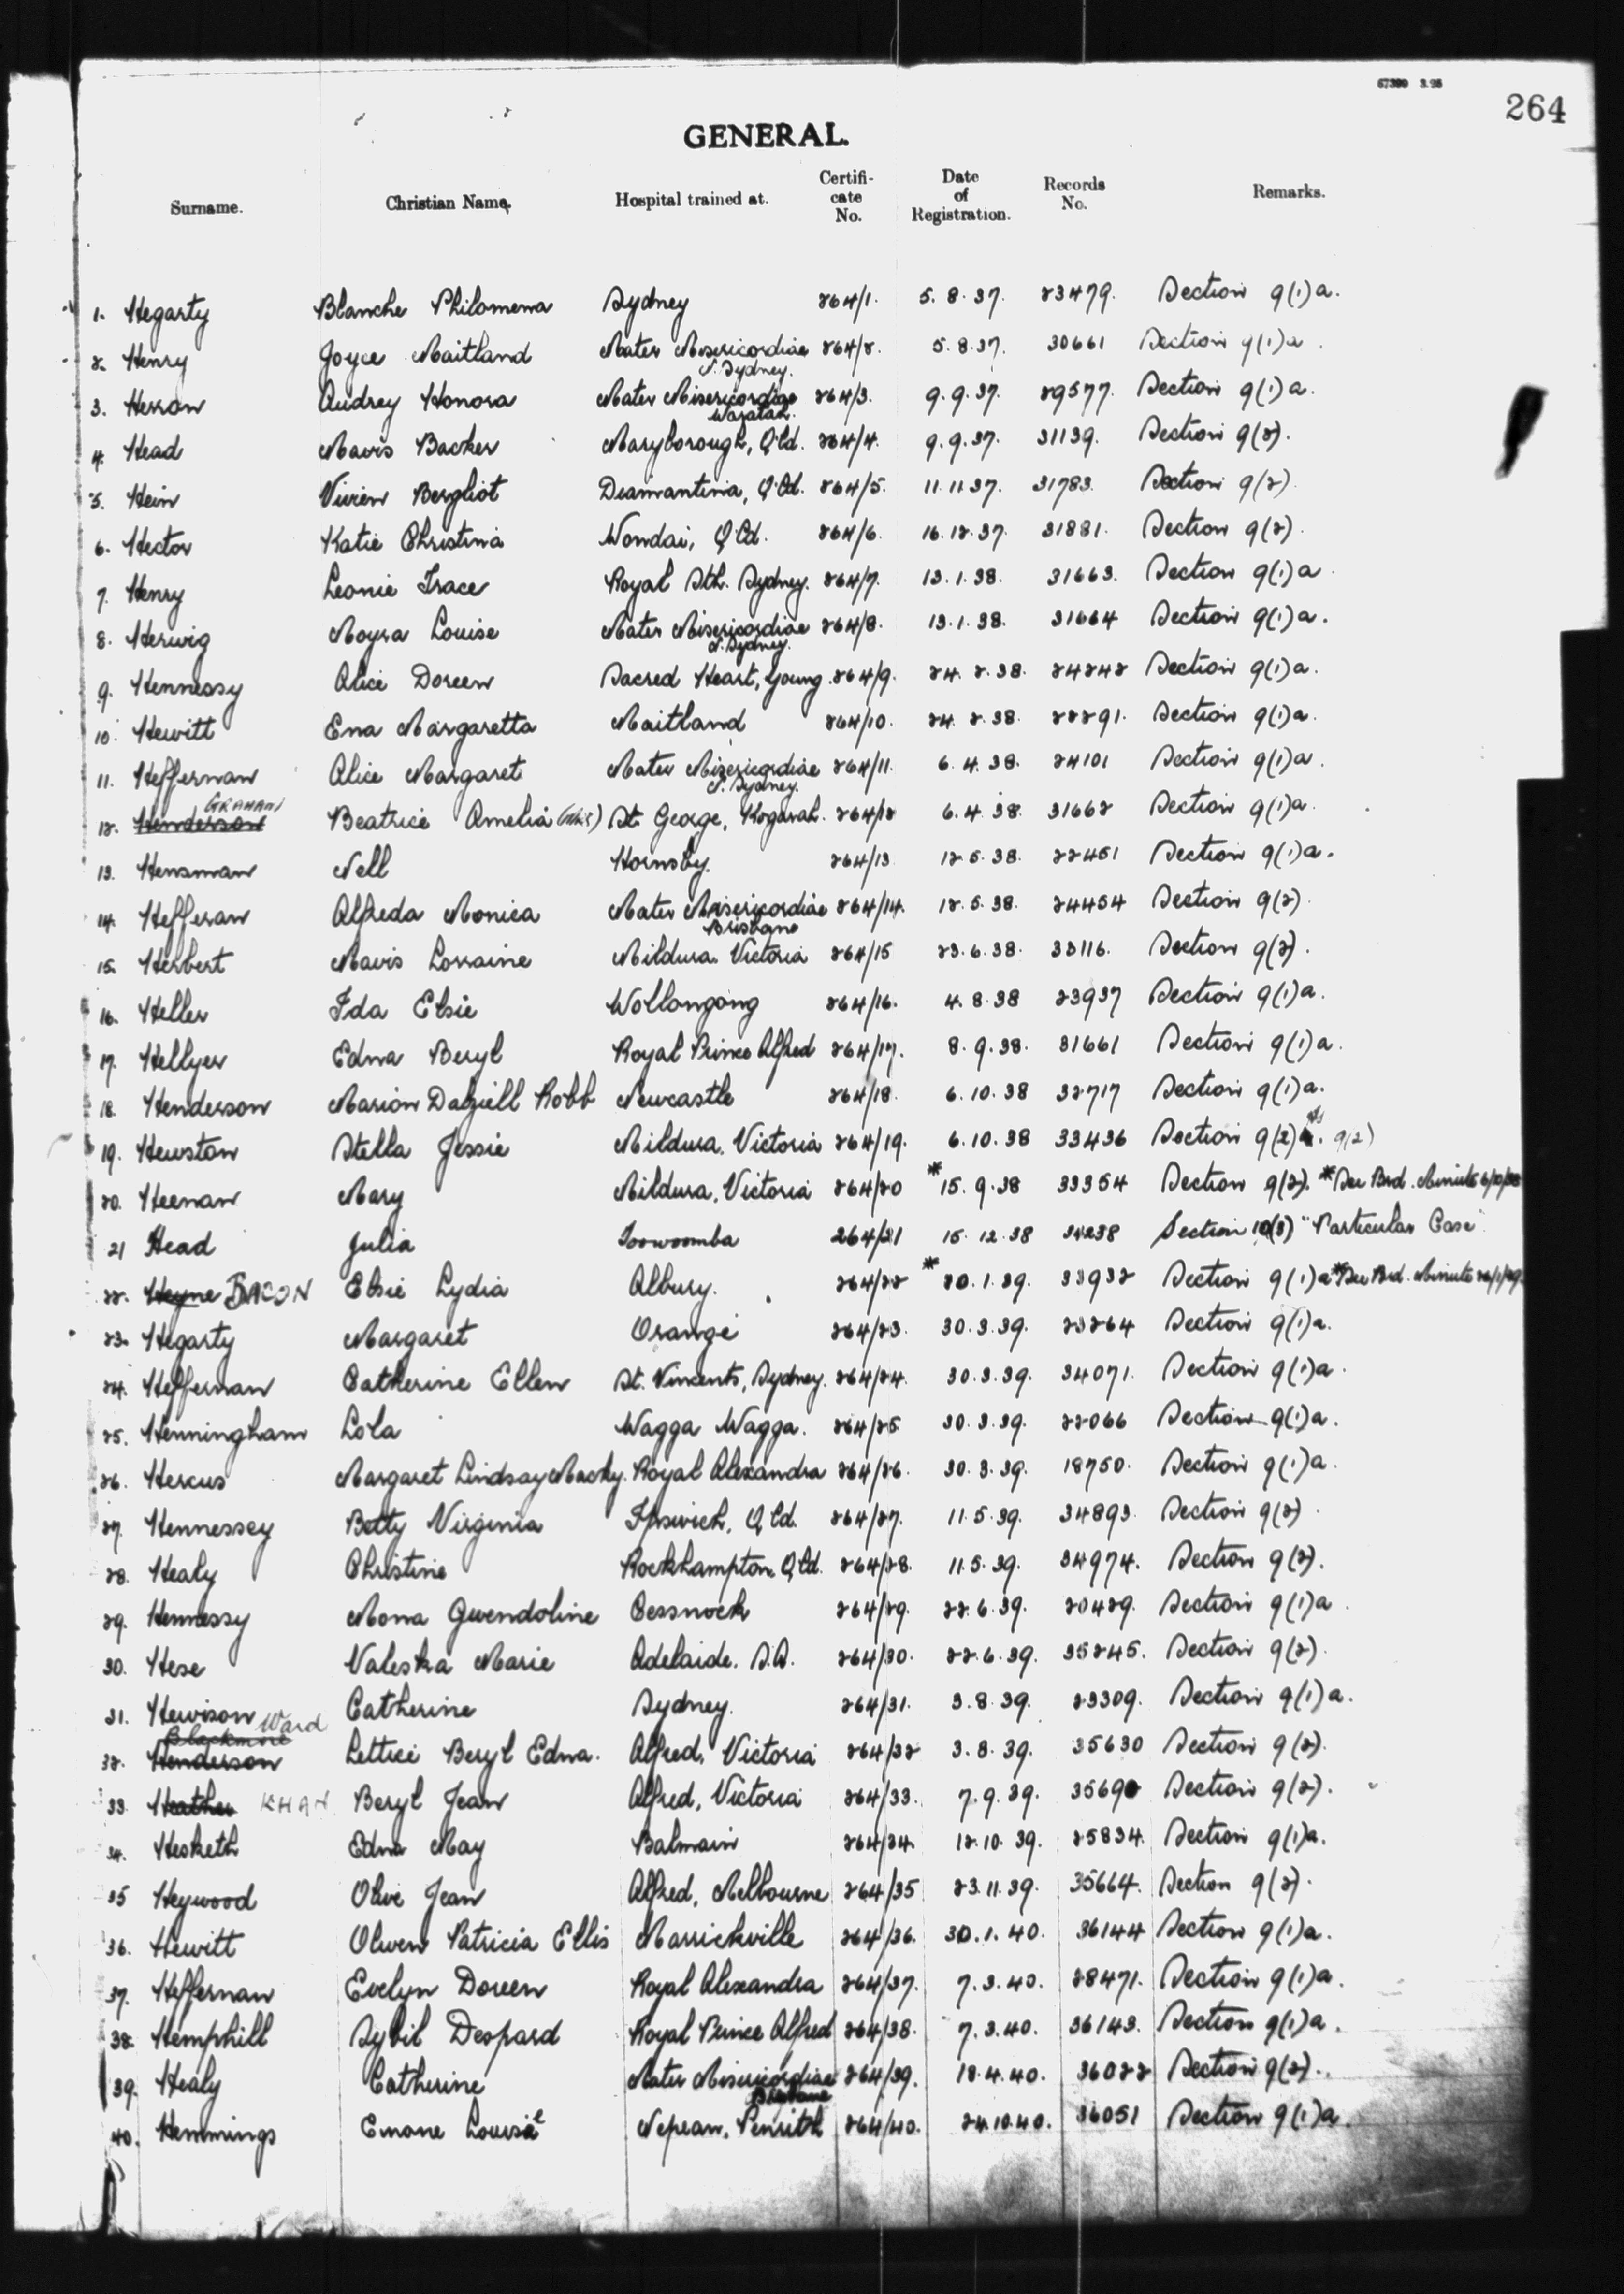 67399 3.35
264
GENERAL.
Surname. Christian Name. Hospital trained at. Certifi-cate No. Date of Registration. Records No. Remarks.
1. Hegarty Blanche Philomena Sydney 264/1. 5.8.37. 23479. Section 9(1)a.
2. Henry Joyce Maitland Mater Misericordiae N. Sydney. 264/2. 5.8.37. 30661 Section 9(1)a.
3. Herron Audrey Honora Mater Misericordiae Waratah. 264/3. 9.9.37. 29577. Section 9(1)a.
4. Head Mavis Backer Maryborough, Q'ld. 264/4. 9.9.37. 31139. Section 9(2).
5. Hein Vivien Bergliot Diamantina, Q'ld. 264/5. 11.11.37. 31783. Section 9(2).
6. Hector Katie Christina Wondai, Q'ld. 264/6. 16.12.37. 31881. Section 9(2).
7. Henry Leonie Grace Royal Sth. Sydney. 264/7. 13.1.38. 31663. Section 9(1)a.
8. Herwig Moyra Louise Mater Misericordiae N. Sydney. 264/8. 13.1.38. 31664 Section 9(1)a.
9. Hennessy Alice Doreen Sacred Heart, Young. 264/9. 24.2.38. 24242 Section 9(1)a.
10. Hewitt Ena Margaretta Maitland 264/10. 24.2.38. 22291. Section 9(1)a.
11. Heffernan Alice Margaret Mater Misericordiae N. Sydney. 264/11. 6.4.38. 24101 Section 9(1)a.
GRAHAM
12. Henderson Beatrice Amelia St. George, Kogarah. 264/12 6.4.38. 31662 Section 9(1)a.
13. Hensman Nell Hornsby. 264/13. 12.5.38. 22451 Section 9(1)a.
14. Hefferan Alfreda Monica Mater Misericordiae Brisbane 264/14. 12.5.38. 24454 Section 9(2)
15. Herbert Mavis Lorraine Mildura. Victoria 264/15 23.6.38. 33116. Section 9(2).
16. Heller Ida Elsie Wollongong 264/16. 4.8.38 23937 Section 9(1)a.
17. Hellyer Edna Beryl Royal Prince Alfred 264/17. 8.9.38. 31661 Section 9(1)a.
18. Henderson Marion Dalziell Robb Newcastle 264/18. 6.10.38 32717 Section 9(1)a.
19. Hewston Stella Jessie Mildura, Victoria 264/19. 6.10.38 33436 Section 9(2) 9(2)
20. Heenan Mary Mildura, Victoria 264/20 *15.9.38 33354 Section 9(2). *See Brd. Minute 6/10/38
21 Head Julia Toowoomba 264/21 15.12.38 34238 Section 10(3) "Particular Case"
22. Heyne BACON Elsie Lydia Albury. 264/22 *20.1.39. 33932 Section 9(1)a *See Brd. Minute 26/1/39.
23. Hegarty Margaret Orange 264/23. 30.3.39. 23264 Section 9(1)a.
24. Heffernan Catherine Ellen St. Vincents, Sydney. 264/24. 30.3.39. 34071. Section 9(1)a.
25. Henningham Lola Wagga Wagga. 264/25 30.3.39. 22066 Section 9(1)a.
26. Hercus Margaret Lindsay Macky. Royal Alexandra 264/26. 30.3.39. 18750. Section 9(1)a.
27. Hennessey Betty Virginia Ipswich, Q'ld. 264/27. 11.5.39. 34893. Section 9(2).
28. Healy Christine Rockhampton, Q'ld. 264/28. 11.5.39. 34974. Section 9(2).
29. Hennessy Mona Gwendoline Cessnock 264/29. 22.6.39. 20429. Section 9(1)a.
30. Hese Valeska Marie Adelaide. S.A. 264/30. 22.6.39. 35245. Section 9(2).
31. Hewison Catherine Sydney. 264/31. 3.8.39. 23309. Section 9(1)a.
Blackmore Ward
32. Henderson Lettice Beryl Edna. Alfred, Victoria 264/32 3.8.39. 35630 Section 9(2).
33. Heather KHAN Beryl Jean Alfred, Victoria 264/33. 7.9.39. 35690 Section 9(2).
34. Hesketh Edna May Balmain 264/34. 12.10.39. 25834. Section 9(1)a.
35 Heywood Olive Jean Alfred, Melbourne 264/35 23.11.39. 35664. Section 9(2).
36. Hewitt Olwen Patricia Ellis Marrickville 264/36. 30.1.40. 36144 Section 9(1)a.
37. Heffernan Evelyn Doreen Royal Alexandra 264/37. 7.3.40. 28471. Section 9(1)a.
38. Hemphill Sybil Despard Royal Prince Alfred 264/38. 7.3.40. 36143. Section 9(1)a.
39. Healy Catherine Mater Misericordiae Brisbane 264/39. 18.4.40. 36022 Section 9(2).
40. Hemmings Emone Louise Nepean, Penrith 264/40. 24.10.40. 36051 Section 9(1)a.